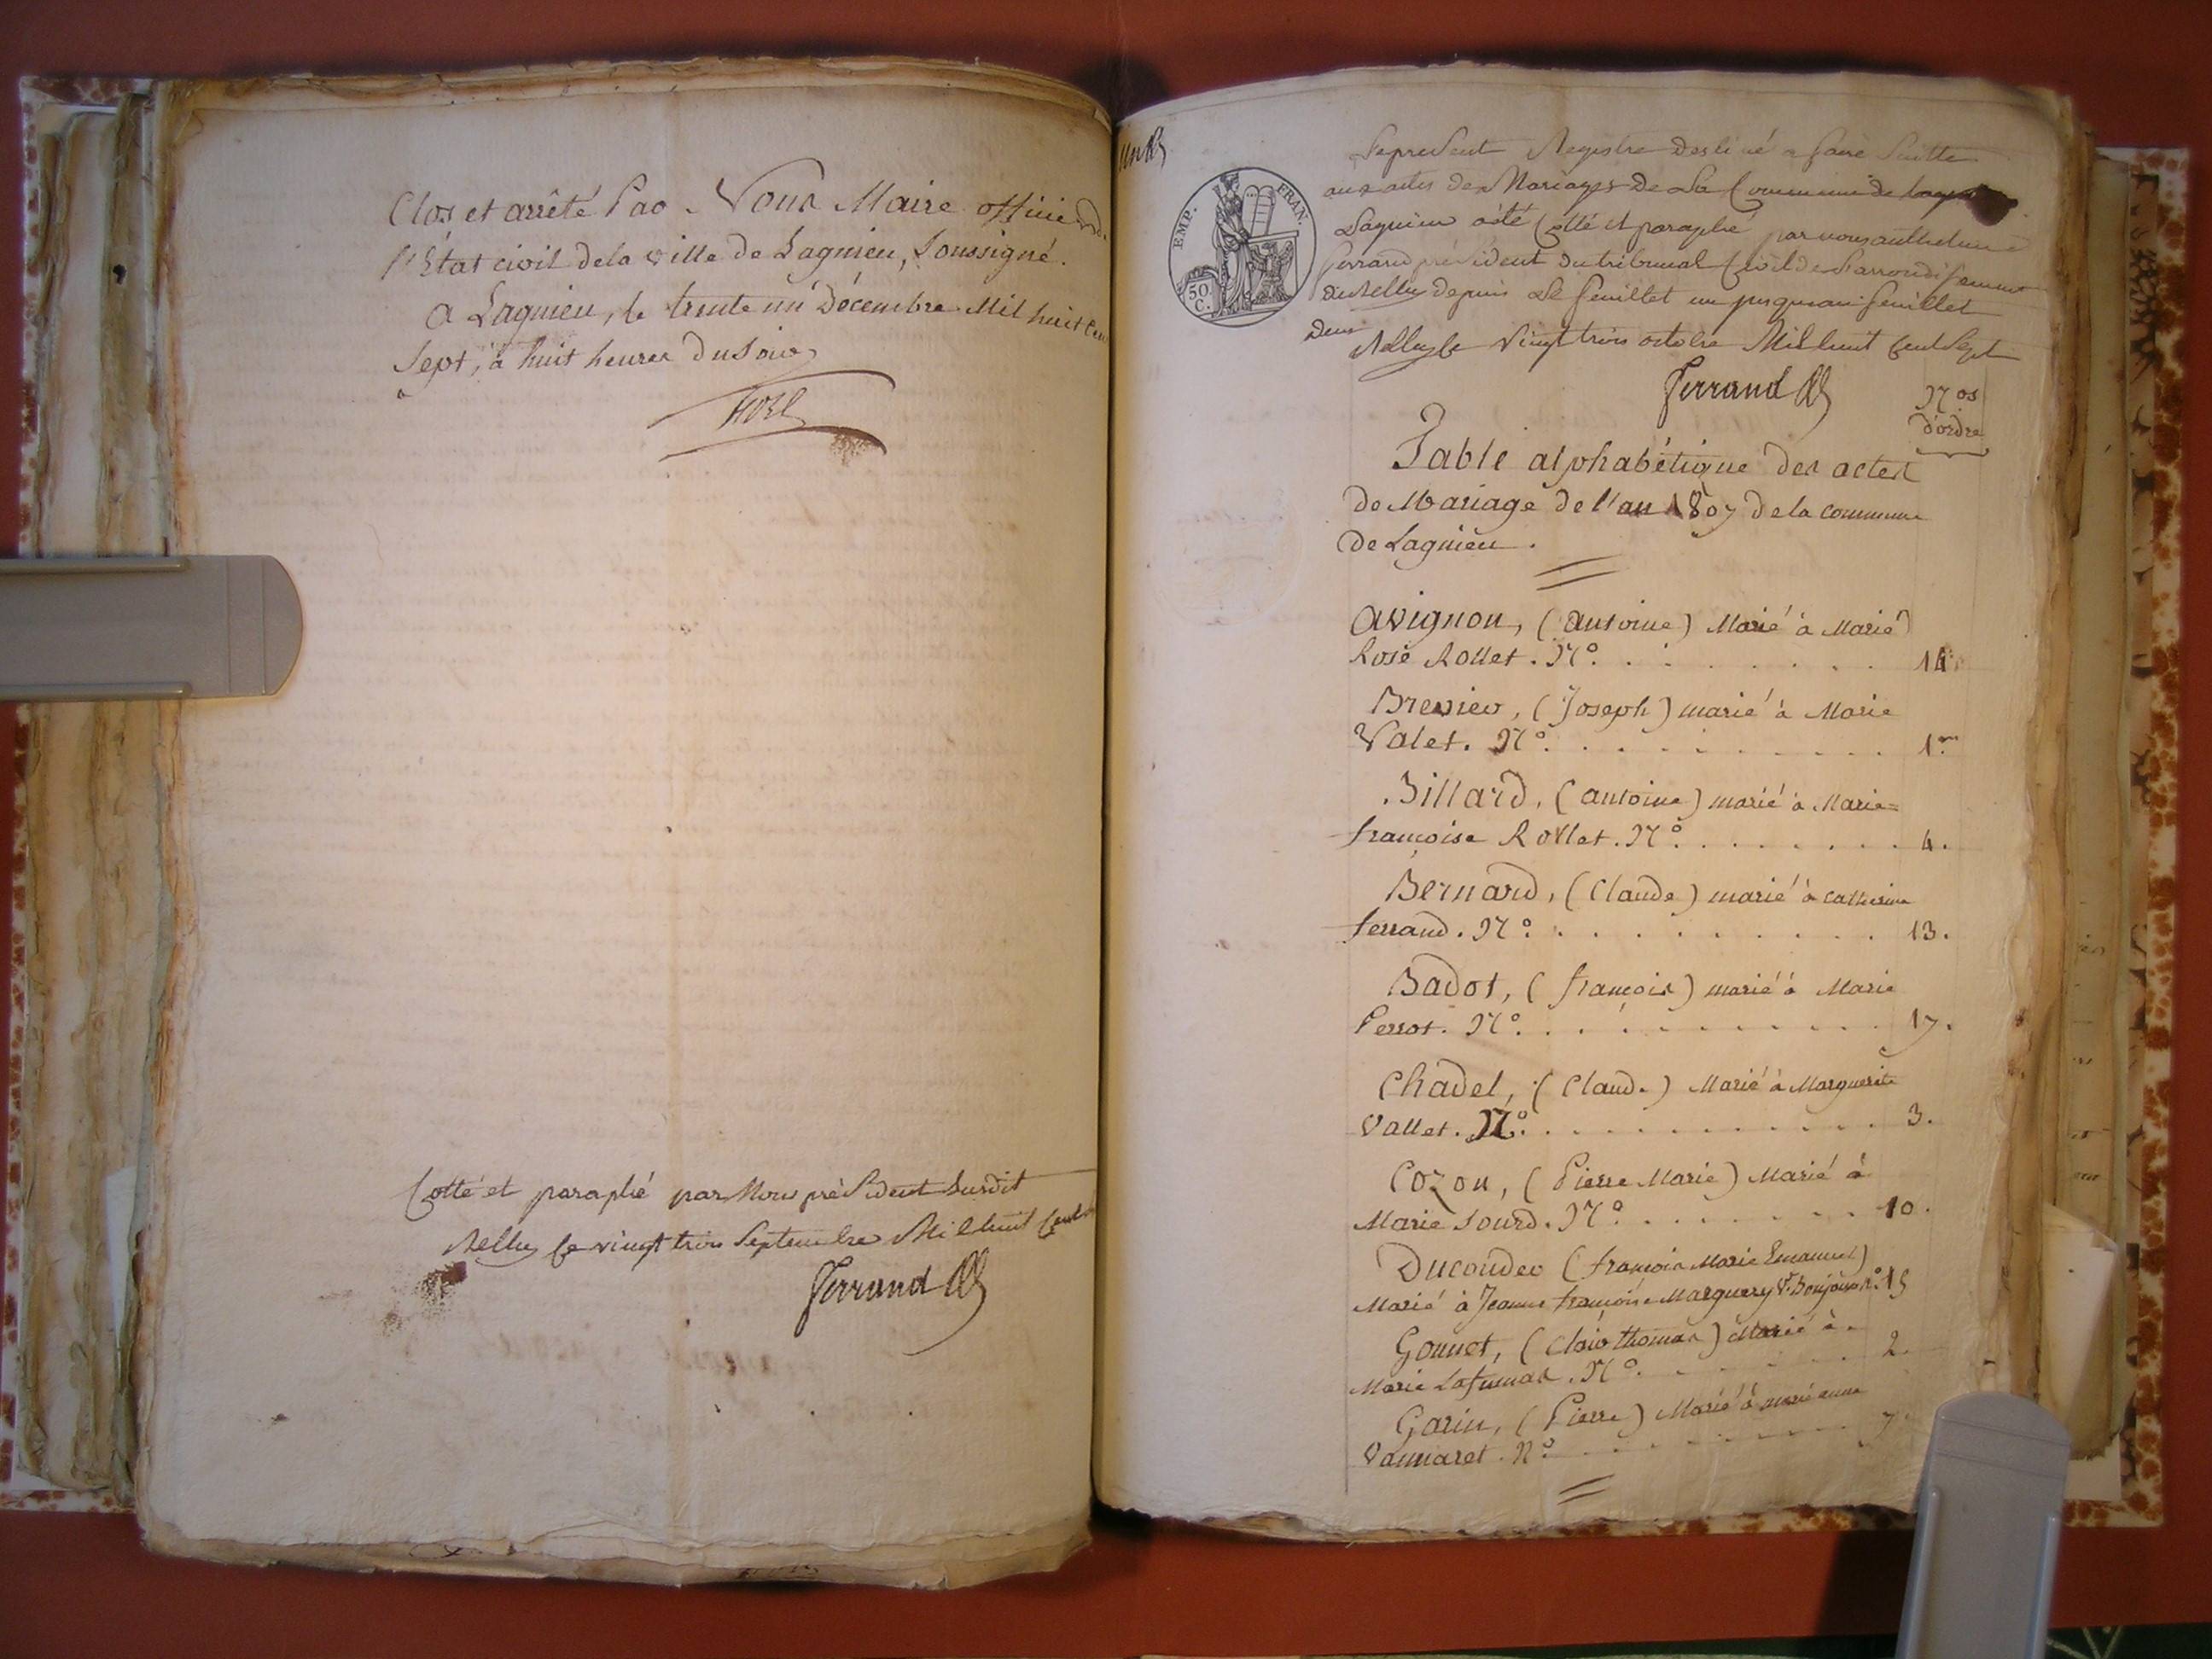 Clos et arrêté Par Nous Maire officier de
l'État civil dela ville de Lagnieu, Soussigné.
a Lagnieu, le trente un Décembre Mil huit Cent
Sept, à huit heures du Soir
Cotté et paraphé par Nous président Susdit
Belley le vingt trois Septembre Mil huit Cent
Ferrand
EMP. FRAN.
50 C.
Le present Registre destiné a faire Suitte
aux actes de Mariages de La Commune de
Lagnieu a été Cotté et paraphé par nous anthelme
ferrand président du tribunal Civil de l'arrondissement
de Belley depuis Le feuillet un jusqu'au feuillet
Deux
Belley le Vingt trois octobre Mil huit Cent Sept
Ferrand
Nos
d'ordre
Table alphabétique des actes
de Mariage de l'an 1807 de la commune
de Lagnieu.
Avignon, (antoine) Marié à Marie
Rose Rollet. N° 14
Bressieu, (Joseph) marié à Marie
Valet. N° 1er
Billard, (antoine) marié à Marie=
françoise Rollet. N° 4.
Bernard, (Claude) marié à Catherine
ferrand. N° 13.
Badot, (françois) marié à Marie
Perrot. N° 17.
Chadel, (Claude) Marié à Marguerite
Vallet. N° 3.
Cozon, (Pierre Marie) Marié à
Marie Sourd. N° 10.
Ducouder (françois Marie Emanuel)
Marié à Jeanne françoise Marguery Ve Bonjour n° 15
Gonnet, (Clair thomas) Marié à
Marie Lafumas. N° 2.
Garin, (Pierre) Marié à marie anne
Vannaret. N° 7.